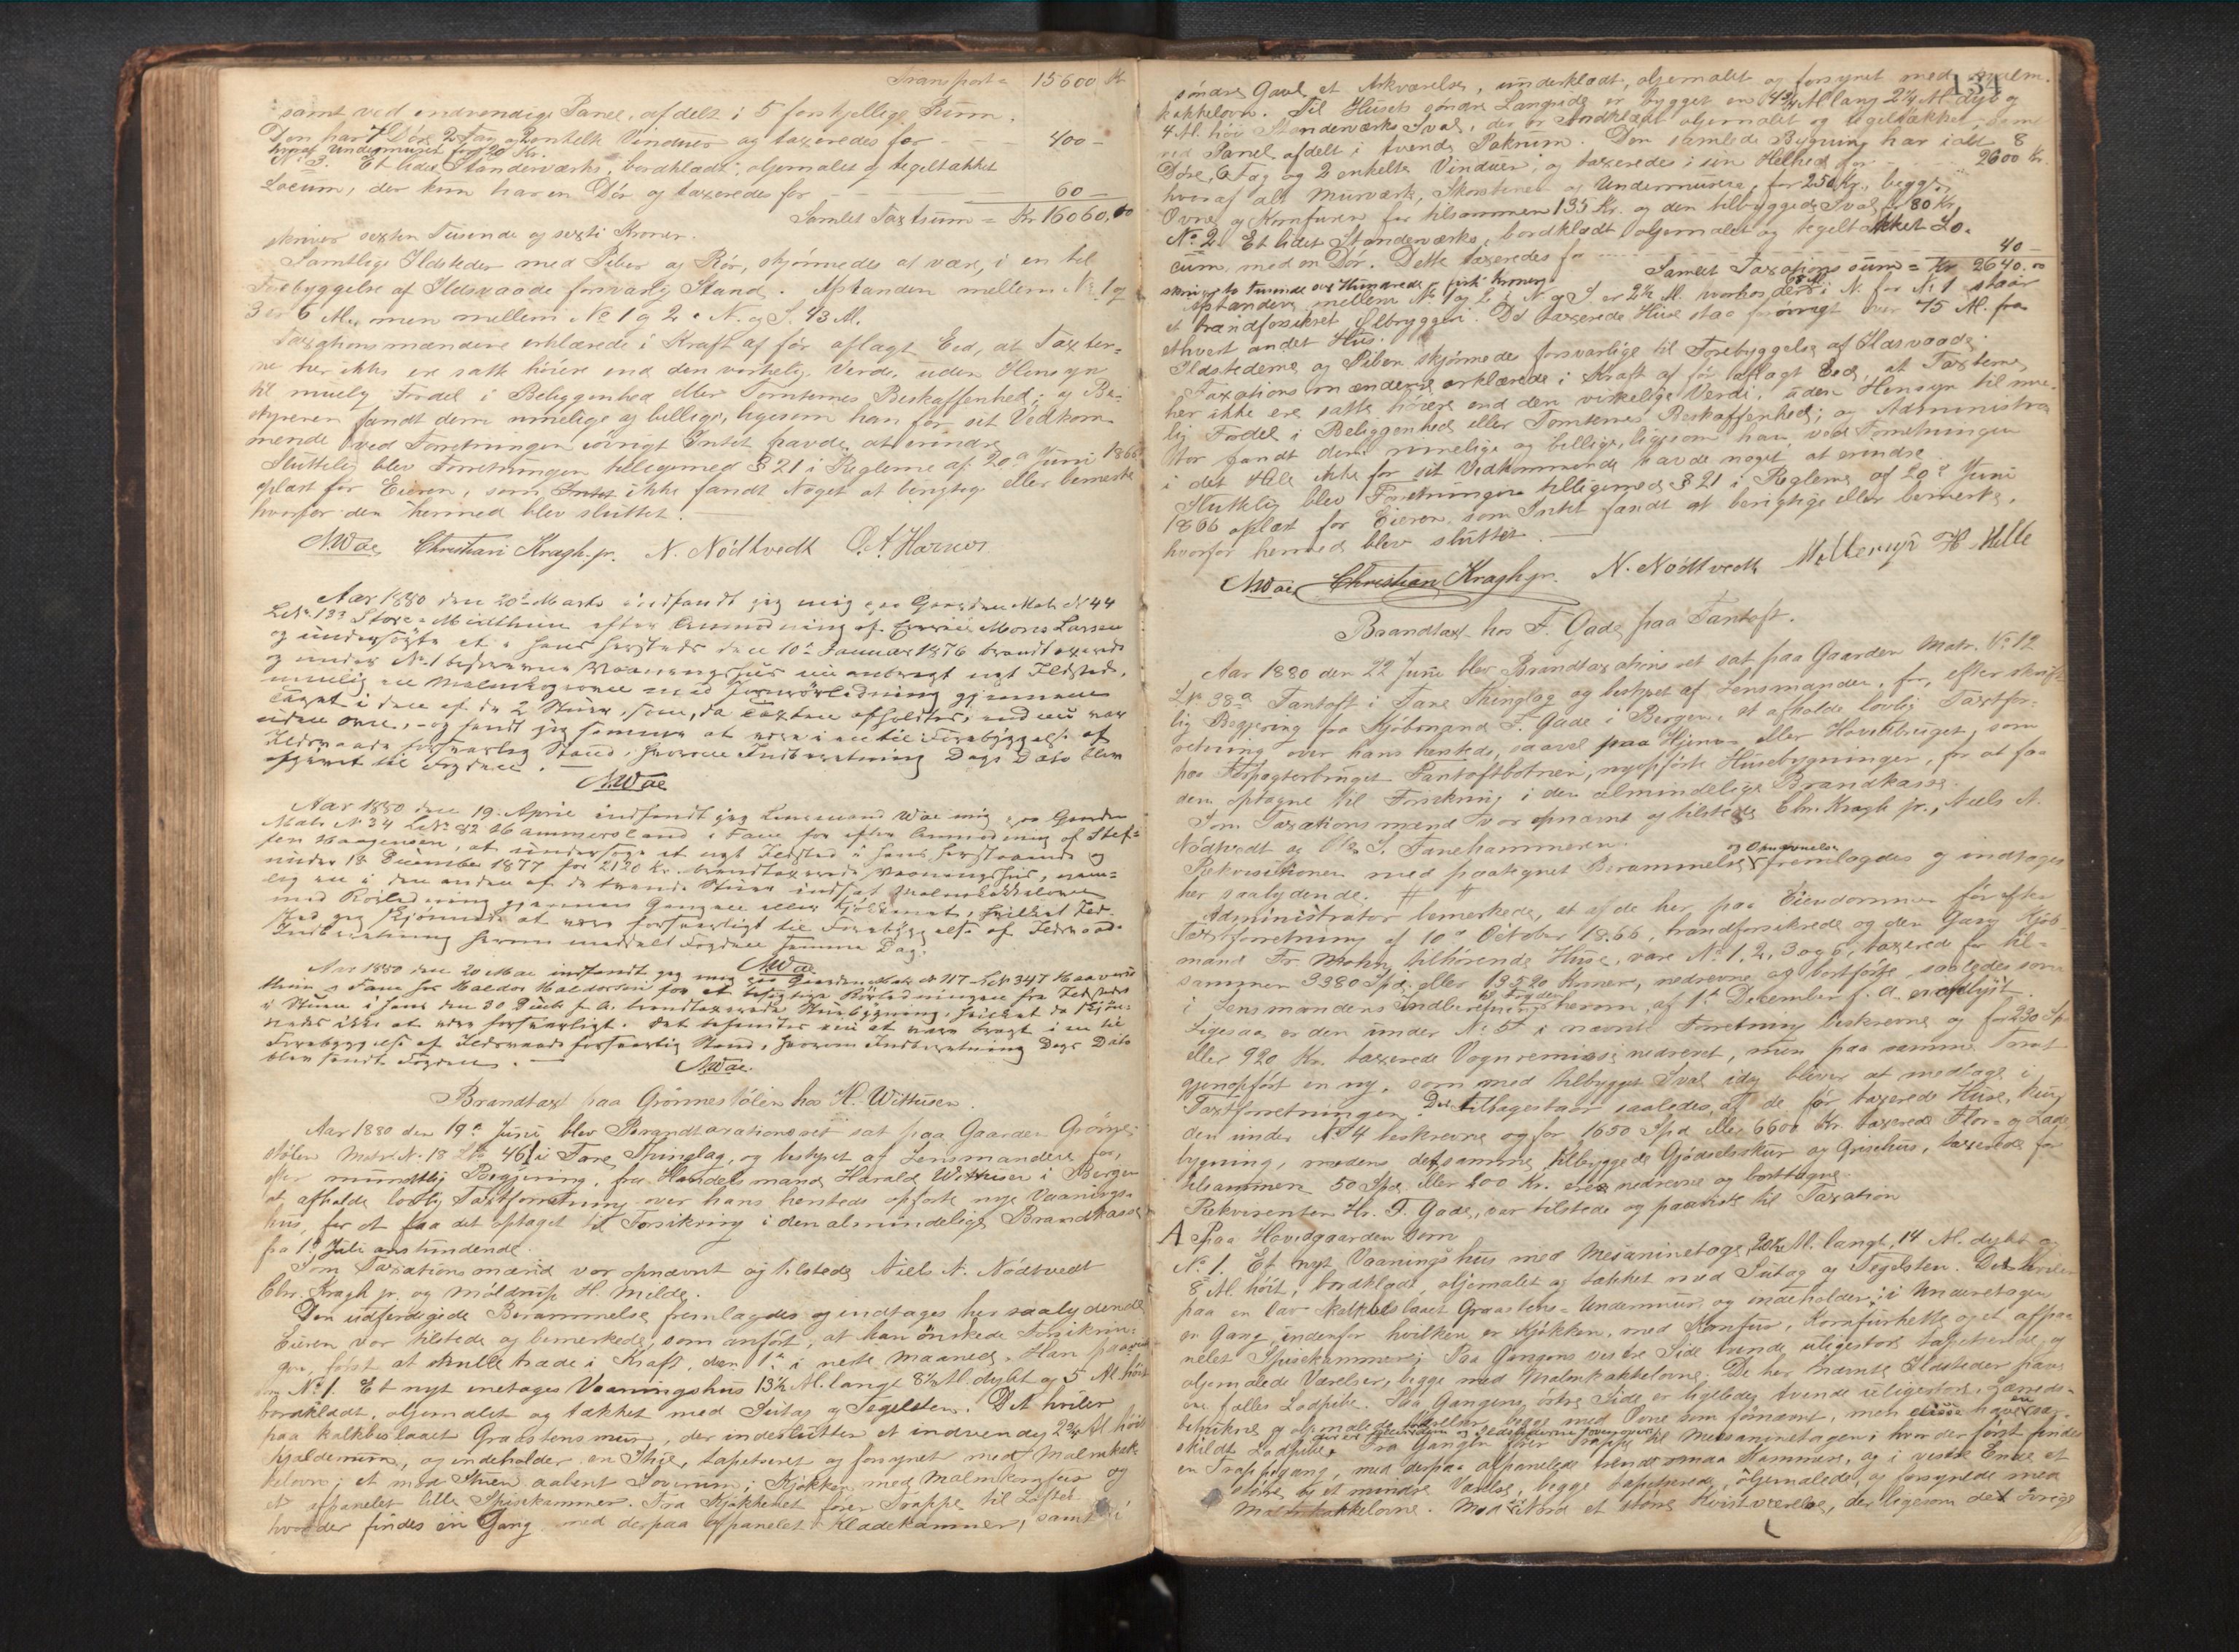 Transport = 15600 Kr
samt ved indvendige Panel, afdelt i 5 forskjellige Rum.
Den har 7 Döre 2 Fag og 2 enkelte Vinduer og taxeredes for - - - 400 -
hvoraf Undermuret for 20 Kr.
No 3. Et lidet Standerværks, bordklædt, oljemalet og tegeltækket
Locum, der kun har en Dör og taxeredes for - - 60 -
Samlet Taxtsum = Kr 16060,00
skriver sexten Tusende og sexti Kroner.
Samtlige Ildsteder med Piber og Rör, skjönnedes at være i en til
Forebyggelse af Ildsvaade forsvarlig Stand. Afstanden mellem No 1 og
3 er 6 Al., men mellem No 1 og 2 i N. og S. 13 Al.
Taxationsmændene erklærede i Kraft af för aflagt Eed, at Taxter-
ne her ikke er satt höiere end den virkelig Verdi, uden Hensyn
til muelig Fordel i Beliggenhed eller Tomternes Beskaffenhed; og Be-
styreren fandt dem rimelige og billige, ligesom han for sit Vedkom-
mende ved Forretningen iövrigt Intet havde at erindre
Sluttelig blev Forretningen tilligemed § 21 i Reglerne af 20de Juni 1866
oplæst for Eieren, som ikke fandt Noget at berigtige eller bemerke
hvorfor den hermed blev sluttet.
AWae Christian Kragh jr. N. Nödtvedt O. A. Havnor
Aar 1880 den 20de Marts indfandt jeg mig paa Gaarden Matr. No 44
LNo 133 Store-Mildthun efter Anmodning af Eieren Mons Larsen
og undersögte et i hans herstedes den 10de Januar 1876 brandtaxerede
og under No 1 beskrevne Vaaningshus nu anbragt nyt Ildsted,
nemlig en Malmkogeovn med Jernrörledning gjennem
Taget i den af de 2 Stuer, som, da Taxten afholdtes, endnu var
uden Ovn, - og fandt jeg samme at være i en til Forebyggelse af
Ildsvaade forsvarlig Stand, hvorom Indberetning Dags Dato blev
afgivet til Fogden.
AWae
Aar 1880 den 19. April indfandt jeg Lensmand Wae mig paa Gaarden
Matr No 34 LNo 82 Hammersland i Fane for efter Anmodning af Stef-
fen Haagensen, at undersöge et nyt Ildsted i hans herstaaende og
under 18 December 1877 for 2120 Kr. brandtaxerede Vaaningshus, nem-
lig en i den anden af de tvende Stuer indsat Malmkakkelovn
med Rörledning gjennem Gangen eller Kjökkenet, hvilket Ild-
sted jeg skjönnede at være forsvarligt til Forebyggelse af Ildsvaade.
Indberetning herom meddelt Fogden samme Dag.
AWae
Aar 1880 den 20 Mai indfandt jeg mig paa Gaarden Matr No 117 LNo 347
thun i Fane hos Haldor Haldorsen for at besigtige Rörledningen fra Ildstedet
i Stuen i hans den 30 f. A. brandtaxerede Stuebygning, hvilket da skjön-
nedes ikke at være forsvarligt. Det befandtes nu at være bragt i en til
Forebyggelse af Ildsvaade forsvarlig Stand, hvorom Indberetning Dags Dato
blev sendt Fogden.
AWae.
Brandtaxt paa Grönnestölen hos H. Withusen.
Aar 1880 den 19de Juni blev Brandtaxationsret sat paa Gaarden Grönne-
stölen Matr. No 18 LNo 46 i Fane Thinglag, og bestyret af Lensmanden for,
efter mundtlig Begjering, fra Handelsmand Harald Withusen i Bergen
at afholde lovlig Taxtforretning over hans herstede opförte nye Vaanings-
hus, for at faa det optaget til Forsikring i den almindelige Brandkasse
fra 1de Juli anstundende.
Som Taxationsmænd var opnævnt og tilstede Niels N. Nödtvedt
Chr. Kragh jr. og Möldrup H. Milde.
Den udferdigede Berammelse fremlagdes og indtages her saalydende
Eieren var tilstede og bemerkede, som anfört, at han önskede Forsikrin-
gen, först at skulle træde i Kraft, den 1ste i neste Maaned. Han paaviste
No 1. Et nyt enetages Vaaningshus 13½ Al. langt 8½ Al. dybt og 5 Al. höit
bordklædt, oljemalet og tækket med Sutag og Tegelsten. Det hviler
paa kalkbeslaaet Graastensmur, der indeslutter et indvendig 2¾ Al höit
Kjælderrum, og indeholder en Stue, tapetseret og forsynet med Malmkak-
kelovn; et mod Stuen aabent Soverum; Kjökken med Malmkomfur og
et afpanelet lille Spisekammer. Fra Kjökkenet förer Trappe til Loftet
hvor der findes en Gang med derpaa afpanelet Klædekammer, samt i
134
söndre Gavl et Arkværelse, underklædt, oljemalet og forsynet med Malm-
kakkelovn. Til Husets söndre Langside er bygget en 4¾ Al lang 2¼ Al dyb og
4 Al. höi Standerværks Sval, der er bordklædt oljemalet og tegeltækket, samt
ved Panel afdelt i tvende Pakrum. Den samlede Bygning har ialt 8
Döre, 6 Fag og 2 enkelte Vinduer, og taxeredes i sin Helhed for - - 2600 Kr.
hvoraf alt Murværk, Skorstenen og Undermurene, for 250 Kr., begge
Ovne og Komfuren for tilsammen 135 Kr. og den tilbyggede Sval for 80 Kr.
No 2. Et lidet Standerværks, bordklædt oljemalet og tegeltækket Lo-
cum, med en Dör. Dette taxeredes for - - - 40 -
Samlet Taxations sum = Kr 2640.00
skriver to Tusende sex Hundrede og firti Kroner.
Afstanden mellem No 1 og 2 i N og S. er 2½ Al. hvorhos der 68 Al. i N. for No 1 staar
et brandforsikret Ölbryggeri. De taxerede Huse staa forövrigt over 75 Al. fra
ethvert andet Hus.
Ildstederne og Piben skjönnedes forsvarlige til Forebyggelse af Ildsvaade.
Taxationsmændene erklærede i Kraft af för aflagt Eed, at Taxterne
her ikke ere satte höiere end den virkelige Verdi, uden Hensyn til mue-
lig Fordel i Beliggenhed eller Tomternes Beskaffenhed; og Administra-
tor fandt dem rimelige og billige, ligesom han, ved Forretningen
i det Hele ikke for sit Vedkommende havde noget at erindre
Sluttelig blev Forretningen tilligemed § 21 i Reglerne af 20de Juni
1866 oplæst for Eieren som Intet fandt at berigtige eller bemerke,
hvorfor hermed blev sluttet.
AWae Christian Kragh jr. N. Nödtvedt Möllerup H. Milde
Brandtaxt hos F. Gade paa Fantoft.
Aar 1880 den 22 Juni blev Brandtaxations ret sat paa Gaarden Matr. No 12
LNo 38a Fantoft i Fane Thinglag og bestyret af Lensmanden, for, efter skrift-
lig Begjering fra Kjöbmand F. Gade i Bergen, at afholde lovlig Taxtfor-
retning over hans herstede, saavel paa Hjeme- eller Hovedbruget, som
paa Forpagterbruget Fantoftbotnen, nyopförte Husebygninger, for at faa
dem optagne til Forsikring i den almindelige Brandkasse.
Som Taxationsmænd var opnævnt og tilstede Chr. Kragh jr., Niels N.
Nödtvedt og Ole S. Fanehammeren.
Rekvisitionen med paategnet Berammelse og Opnævnelse fremlagdes og indtages
her saalydende. # #
Administrator bemerkede, at af de her paa Eiendommen för efter
Taxtforretning af 10de October 1866, brandforsikrede og den Gang Kjöb-
mand Fr. Mohn tilhörende Huse, vare No 1, 2, 3 og 6, taxerede for til-
sammen 3380 Spd. eller 13520 Kroner, nedrevne og bortförte, saaledes som
i Lensmandens Indberetning til Fogden herom, af 1ste December f. a. er oplyst.
Ligesaa er den under No 5 i nævnte Forretning beskrevne og for 230 Spd
eller 920 Kr. taxerede Vognremisse nedrevet, men paa samme Tomt
gjenopfört en ny, som med tilbygget Sval idag bliver at medtage i
Taxtforretningen. Der tilbagestaar saaledes, af de för taxerede Huse, kun
den under No 4 beskrevne og for 1650 Spd eller 6600 Kr. taxerede Flor- og Lade-
bygning, medens det samme tilbyggede Gjödselsskur og Grisehus, taxerede for
tilsammen 50 Spd. eller 200 Kr. ere nedrevne og borttagne.
Rekvirenten Hr. F. Gade, var tilstede og paaviste til Taxation
A Paa Hovedgaarden Dom
No 1. Et nyt Vaaningshus med Mesaninetage, 20½ Al. langt, 14 Al. dybt og
8 Al. höit, bordklædt, oljemalet og tækket med Sutag og Tegelsten. Det hviler
paa en lav kalkbeslaaet Graastens-Undermur, og indeholder: i Underetagen
en Gang, indenfor hvilken er Kjökken, med Komfur, Komfurhette og et afpa-
nelet Spisekammer; Paa Gangens vestre Side tvende uligestore tapetserede og
oljemalede Værelser, begge med Malmkakkelovne. De her nævnte Ildsteder have
en fælles Lodpibe. Paa Gangens östre Side er ligeledes tvende uligestore, ganske
betrukne og oljemalede Værelser, begge med Ovne som fornævnt, men disse have en sær-
skildt Lodpibe. Fra Gangen förer Trappe til Mesaninetagen; hvor der först findes
en Trappegang, med derpaa afpanelede tvende smaa Kammere, og i vestre Ende et
större og et mindre Værelse, begge tapetserede, oljemalede og forsynede med
Malmkakkelovne. Mod Nord et större Kvistværelse, der ligesom det övrige